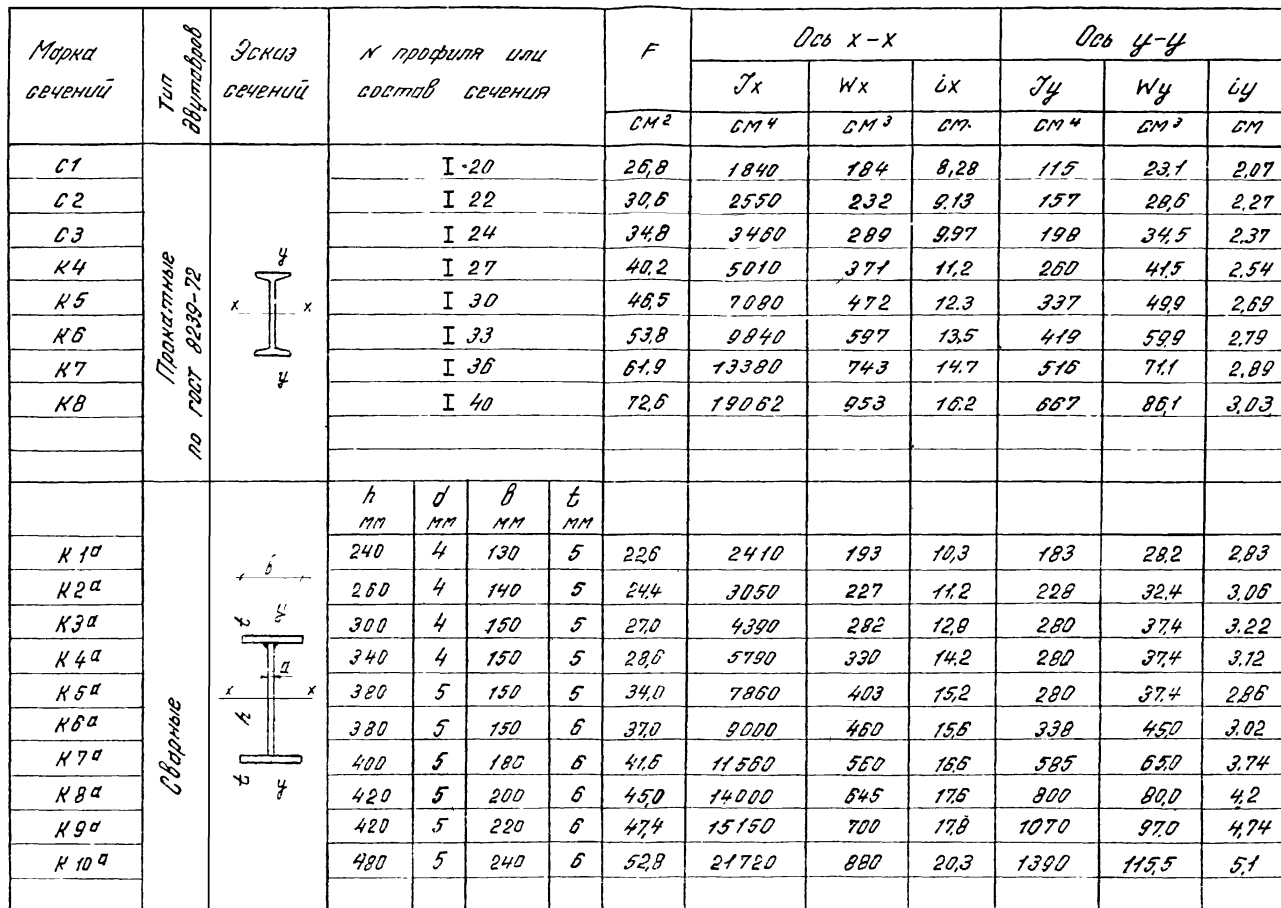 Марка сечений | Тип двутавров | Эскиз сечений | N профиля или состав сечения | F | Ось x-x | Ось y-y
Jx | Wx | ix | Jy | Wy | iy
см2 | см4 | см3 | см. | см4 | см3 | см
Прокатные по ГОСТ 8239-72
y
x x
y
С1 | I 20 | 26,8 | 1840 | 184 | 8,28 | 115 | 23.1 | 2,07
С2 | I 22 | 30,6 | 2550 | 232 | 9.13 | 157 | 28,6 | 2,27
С3 | I 24 | 34,8 | 3460 | 289 | 9,97 | 198 | 34,5 | 2.37
К4 | I 27 | 40,2 | 5010 | 371 | 11,2 | 260 | 41,5 | 2.54
К5 | I 30 | 46,5 | 7080 | 472 | 12.3 | 337 | 49,9 | 2,69
К6 | I 33 | 53,8 | 9840 | 597 | 13,5 | 419 | 59,9 | 2,79
К7 | I 36 | 61.9 | 13380 | 743 | 14.7 | 516 | 71.1 | 2,89
К8 | I 40 | 72,6 | 19062 | 953 | 16.2 | 667 | 86,1 | 3,03
Сварные
h | d | в | t
мм | мм | мм | мм
b
t y
d
x x
h
t y
К1а | 240 | 4 | 130 | 5 | 22,6 | 2410 | 193 | 10,3 | 183 | 28,2 | 2,83
К2а | 260 | 4 | 140 | 5 | 24,4 | 3050 | 227 | 11,2 | 228 | 32,4 | 3,06
К3а | 300 | 4 | 150 | 5 | 27,0 | 4390 | 282 | 12,8 | 280 | 37,4 | 3.22
К4а | 340 | 4 | 150 | 5 | 28,6 | 5790 | 330 | 14.2 | 280 | 37,4 | 3,12
К5а | 380 | 5 | 150 | 5 | 34,0 | 7860 | 403 | 15,2 | 280 | 37.4 | 2,86
К6а | 380 | 5 | 150 | 6 | 37,0 | 9000 | 460 | 15,6 | 338 | 45,0 | 3.02
К7а | 400 | 5 | 180 | 6 | 41,6 | 11560 | 560 | 16,6 | 585 | 65,0 | 3.74
К8а | 420 | 5 | 200 | 6 | 45,0 | 14000 | 645 | 17,6 | 800 | 80,0 | 4,2
К9а | 420 | 5 | 220 | 6 | 47,4 | 15150 | 700 | 17,8 | 1070 | 97,0 | 4,74
К10а | 480 | 5 | 240 | 6 | 52,8 | 21720 | 880 | 20,3 | 1390 | 115,5 | 5,1